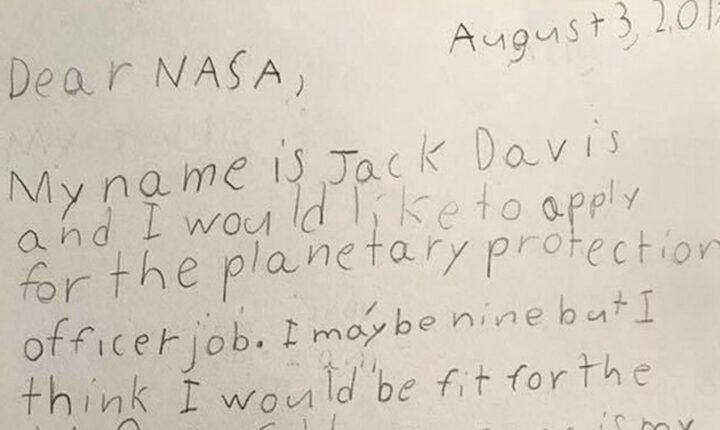 August 3, 201
Dear NASA,
My name is Jack Davis
and I would like to apply
for the planetary protection
officer job. I may be nine but I
think I would be fit for the
is my